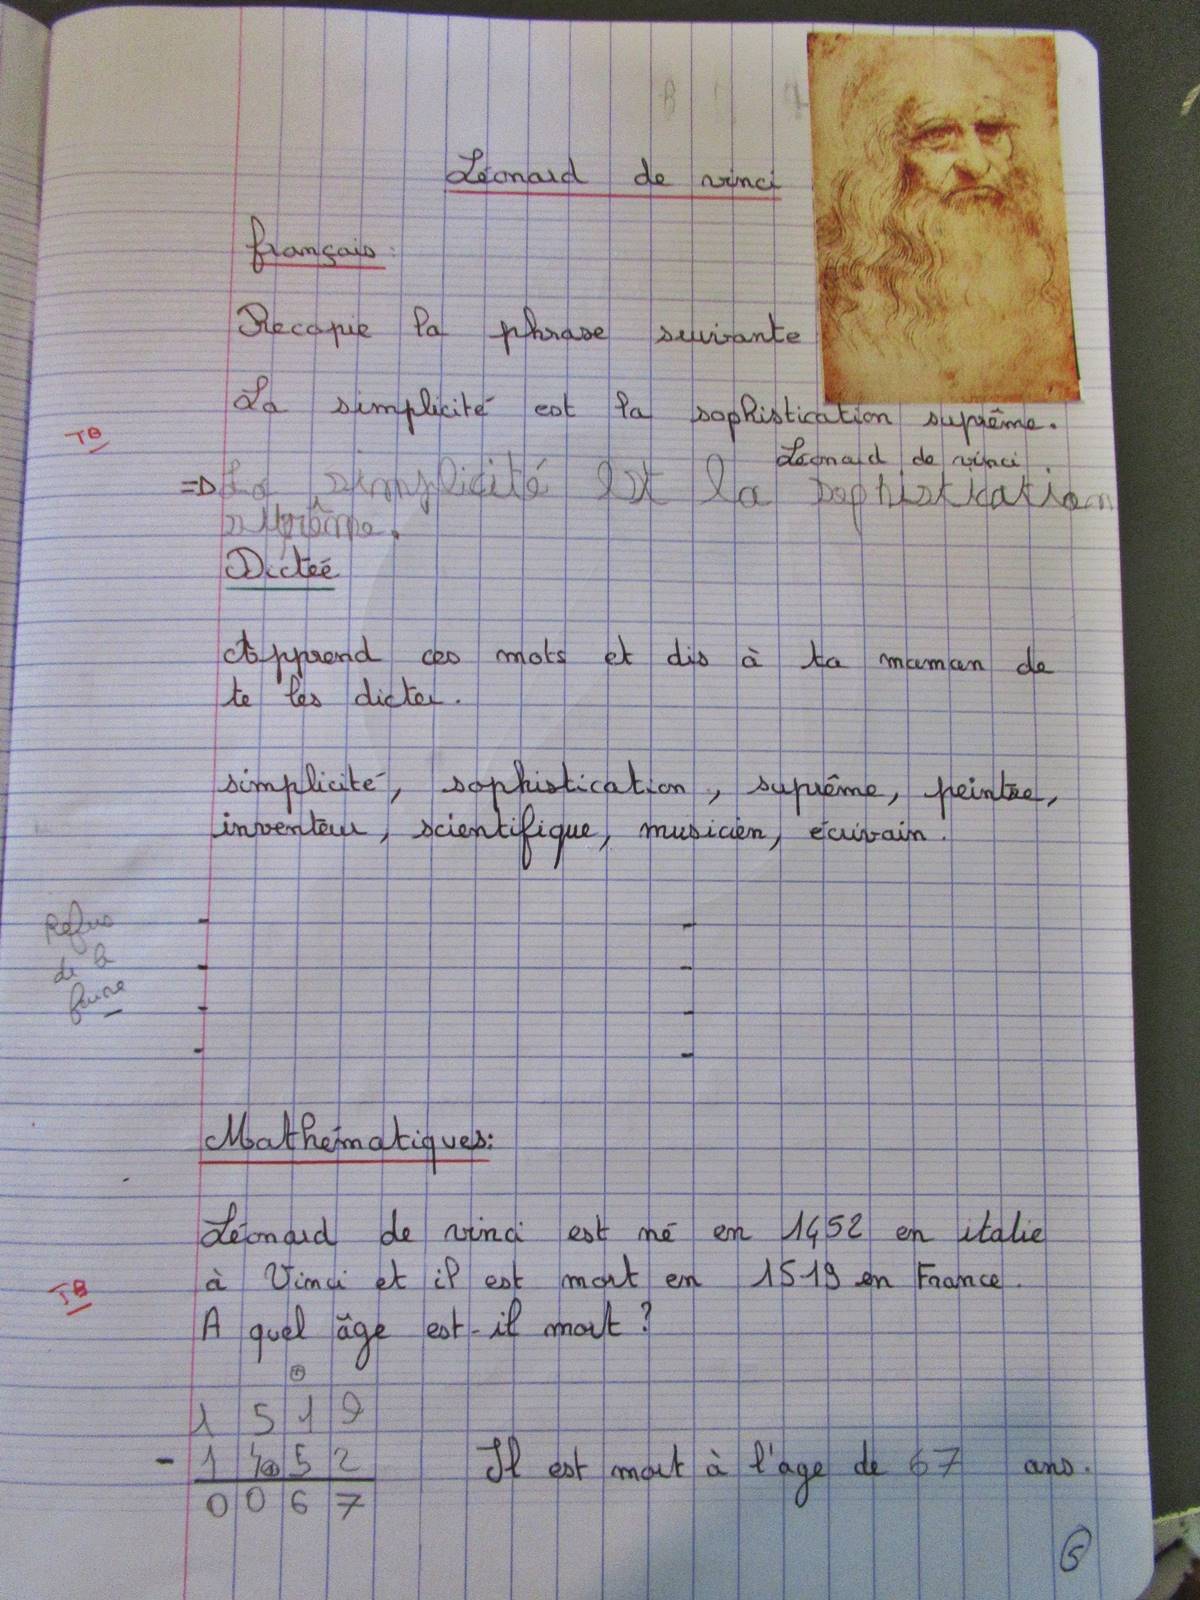 Léonard de vinci
français:
Recopie la phrase suivante
La simplicité est la sophistication suprême.
TB
Léonard de vinci.
=> La simplicité est la sophistication
suprême.
Dictéé
Apprend ces mots et dis à ta maman de
te les dicter.
simplicité, sophistication, suprême, peintre,
inventeur, scientifique, musicien, écrivain.
Refus
de la
faire
-
-
-
-
-
-
-
-
Mathématiques:
Léonard de vinci est né en 1452 en italie
à Vinci et il est mort en 1519 en France.
TB
A quel âge est-il mort ?
1 5 1 9
- 1 4 5 2
0 0 6 7
Il est mort à l'age de 67 ans.
5